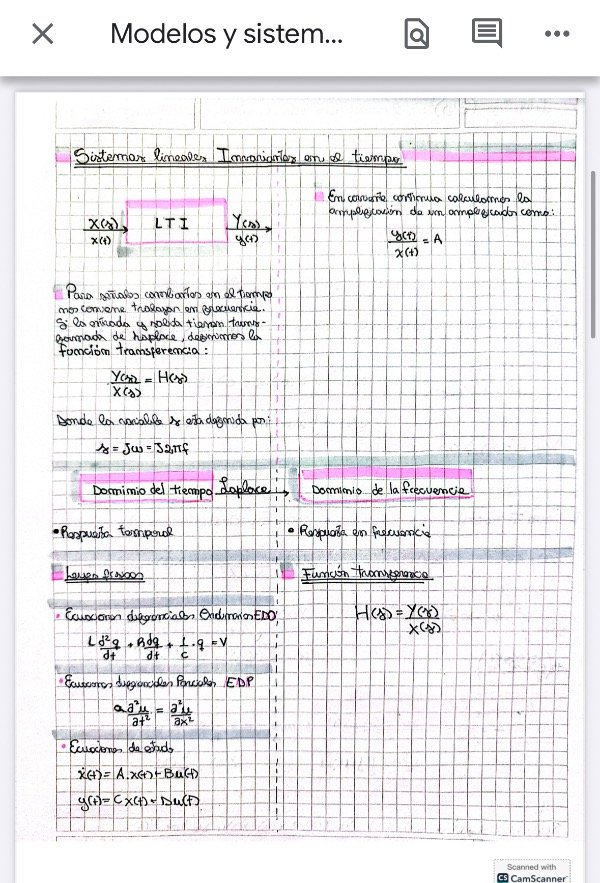 Modelos y sistem...
Sistemas lineales Invariantes en el tiempo
X(s)
x(t)
LTI
Y(s)
y(t)
En corriente continua calculamos la
amplificación de un amplificador como:
y(t)/x(t) = A
Para señales cambiantes en el tiempo
nos conviene trabajar en frecuencia.
Si la entrada y salida tienen trans-
formada de Laplace, definimos la
función transferencia:
Y(s)/X(s) = H(s)
Donde la variable s está definida por:
s = Jω = J2πf
Dominio del tiempo Laplace Dominio de la frecuencia
• Respuesta temporal
• Respuesta en frecuencia
Leyes físicas
Función transferencia
• Ecuaciones diferenciales Ordinarias EDO
L d²q/dt + R dq/dt + 1/C . q = V
H(s) = Y(s)/X(s)
• Ecuaciones diferenciales Parciales EDP
a ∂²u/∂t² = ∂²u/∂x²
• Ecuaciones de estado
ẋ(t) = A.x(t) + Bu(t)
y(t) = Cx(t) + Du(t)
Scanned with
CS CamScanner